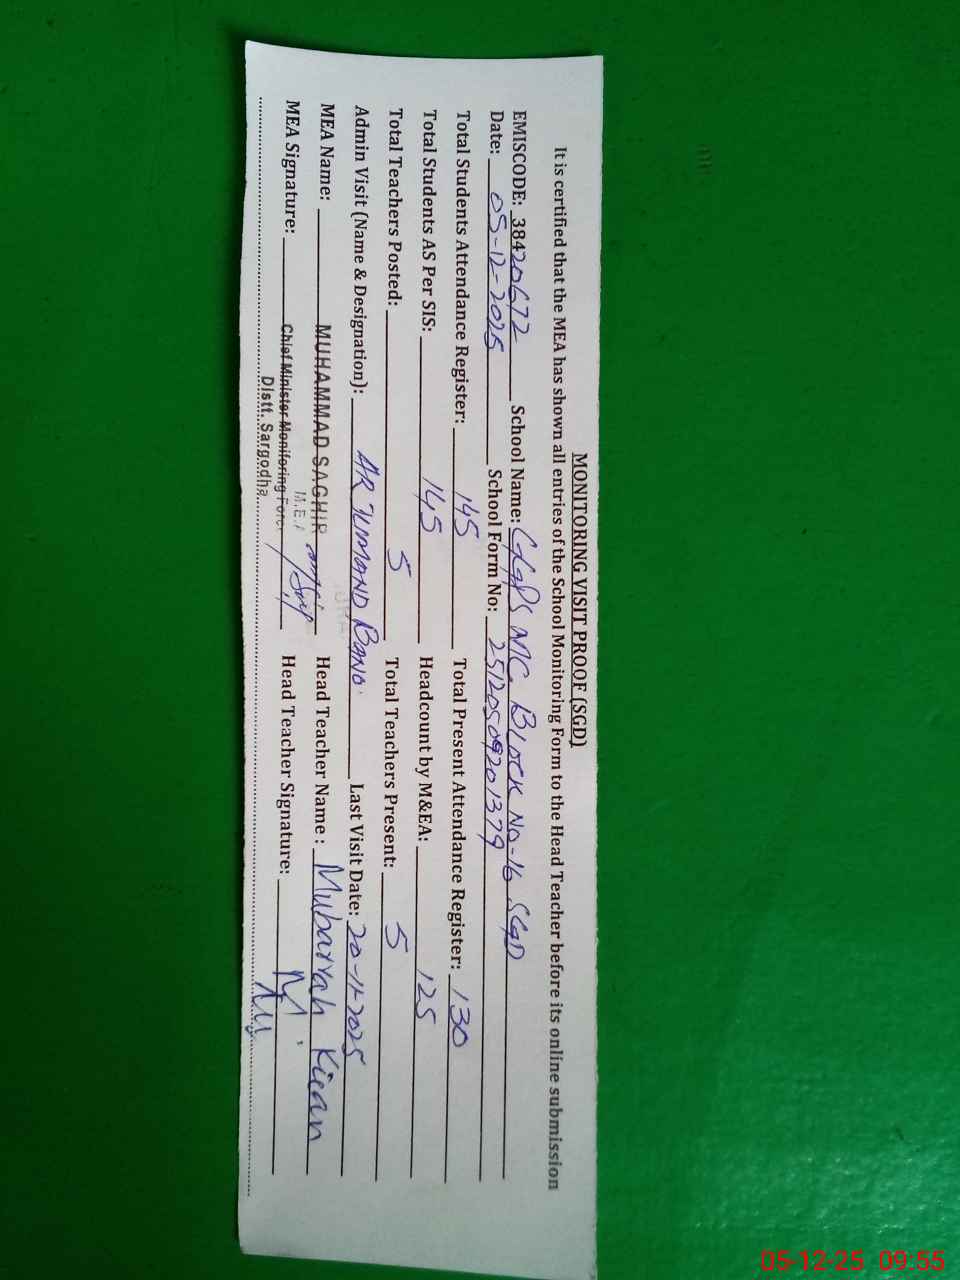 MONITORING VISIT PROOF (SGD)
It is certified that the MEA has shown all entries of the School Monitoring Form to the Head Teacher before its online submission
EMISCODE: 38420672 School Name: GGPS MC Block No-16 SGD
Date: 05-12-2025 School Form No: 25120509201379
Total Students Attendance Register: 145 Total Present Attendance Register: 130
Total Students AS Per SIS: 145 Headcount by M&EA: 125
Total Teachers Posted: 5 Total Teachers Present: 5
Admin Visit (Name & Designation): ARJUMAND BANO Last Visit Date: 20-11-2025
MEA Name: MUHAMMAD SAGHIR Head Teacher Name : Mubarrah Kiran
M.E.A
MEA Signature: Chief Minister Monitoring Force Head Teacher Signature:
Distt. Sargodha
05-12-25 09:55